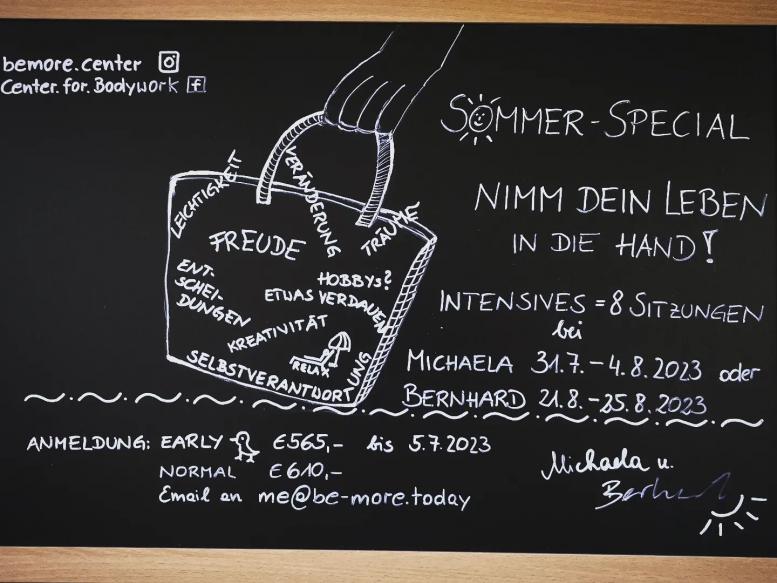 bemore.center
Center.for.Bodywork f
SOMMER-SPECIAL
NIMM DEIN LEBEN
IN DIE HAND!
LEICHTIGKEIT
VERÄNDERUNG
TRÄUME
FREUDE
ENT-
SCHEI-
DUNGEN
HOBBYs?
ETWAS VERDAUEN
KREATIVITÄT
RELAX
SELBSTVERANTWORTUNG
INTENSIVES = 8 SITZUNGEN
bei
MICHAELA 31.7.-4.8.2023 oder
BERNHARD 21.8.-25.8.2023
ANMELDUNG: EARLY €565,- bis 5.7.2023
NORMAL €610,-
Email an me@be-more.today
Michaela u.
Bernhard